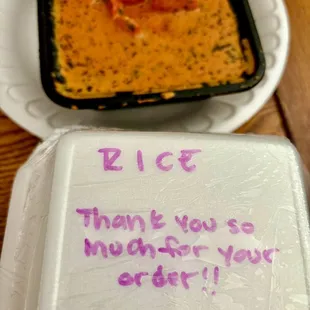 RICE
Thank you so
much for your
order!!